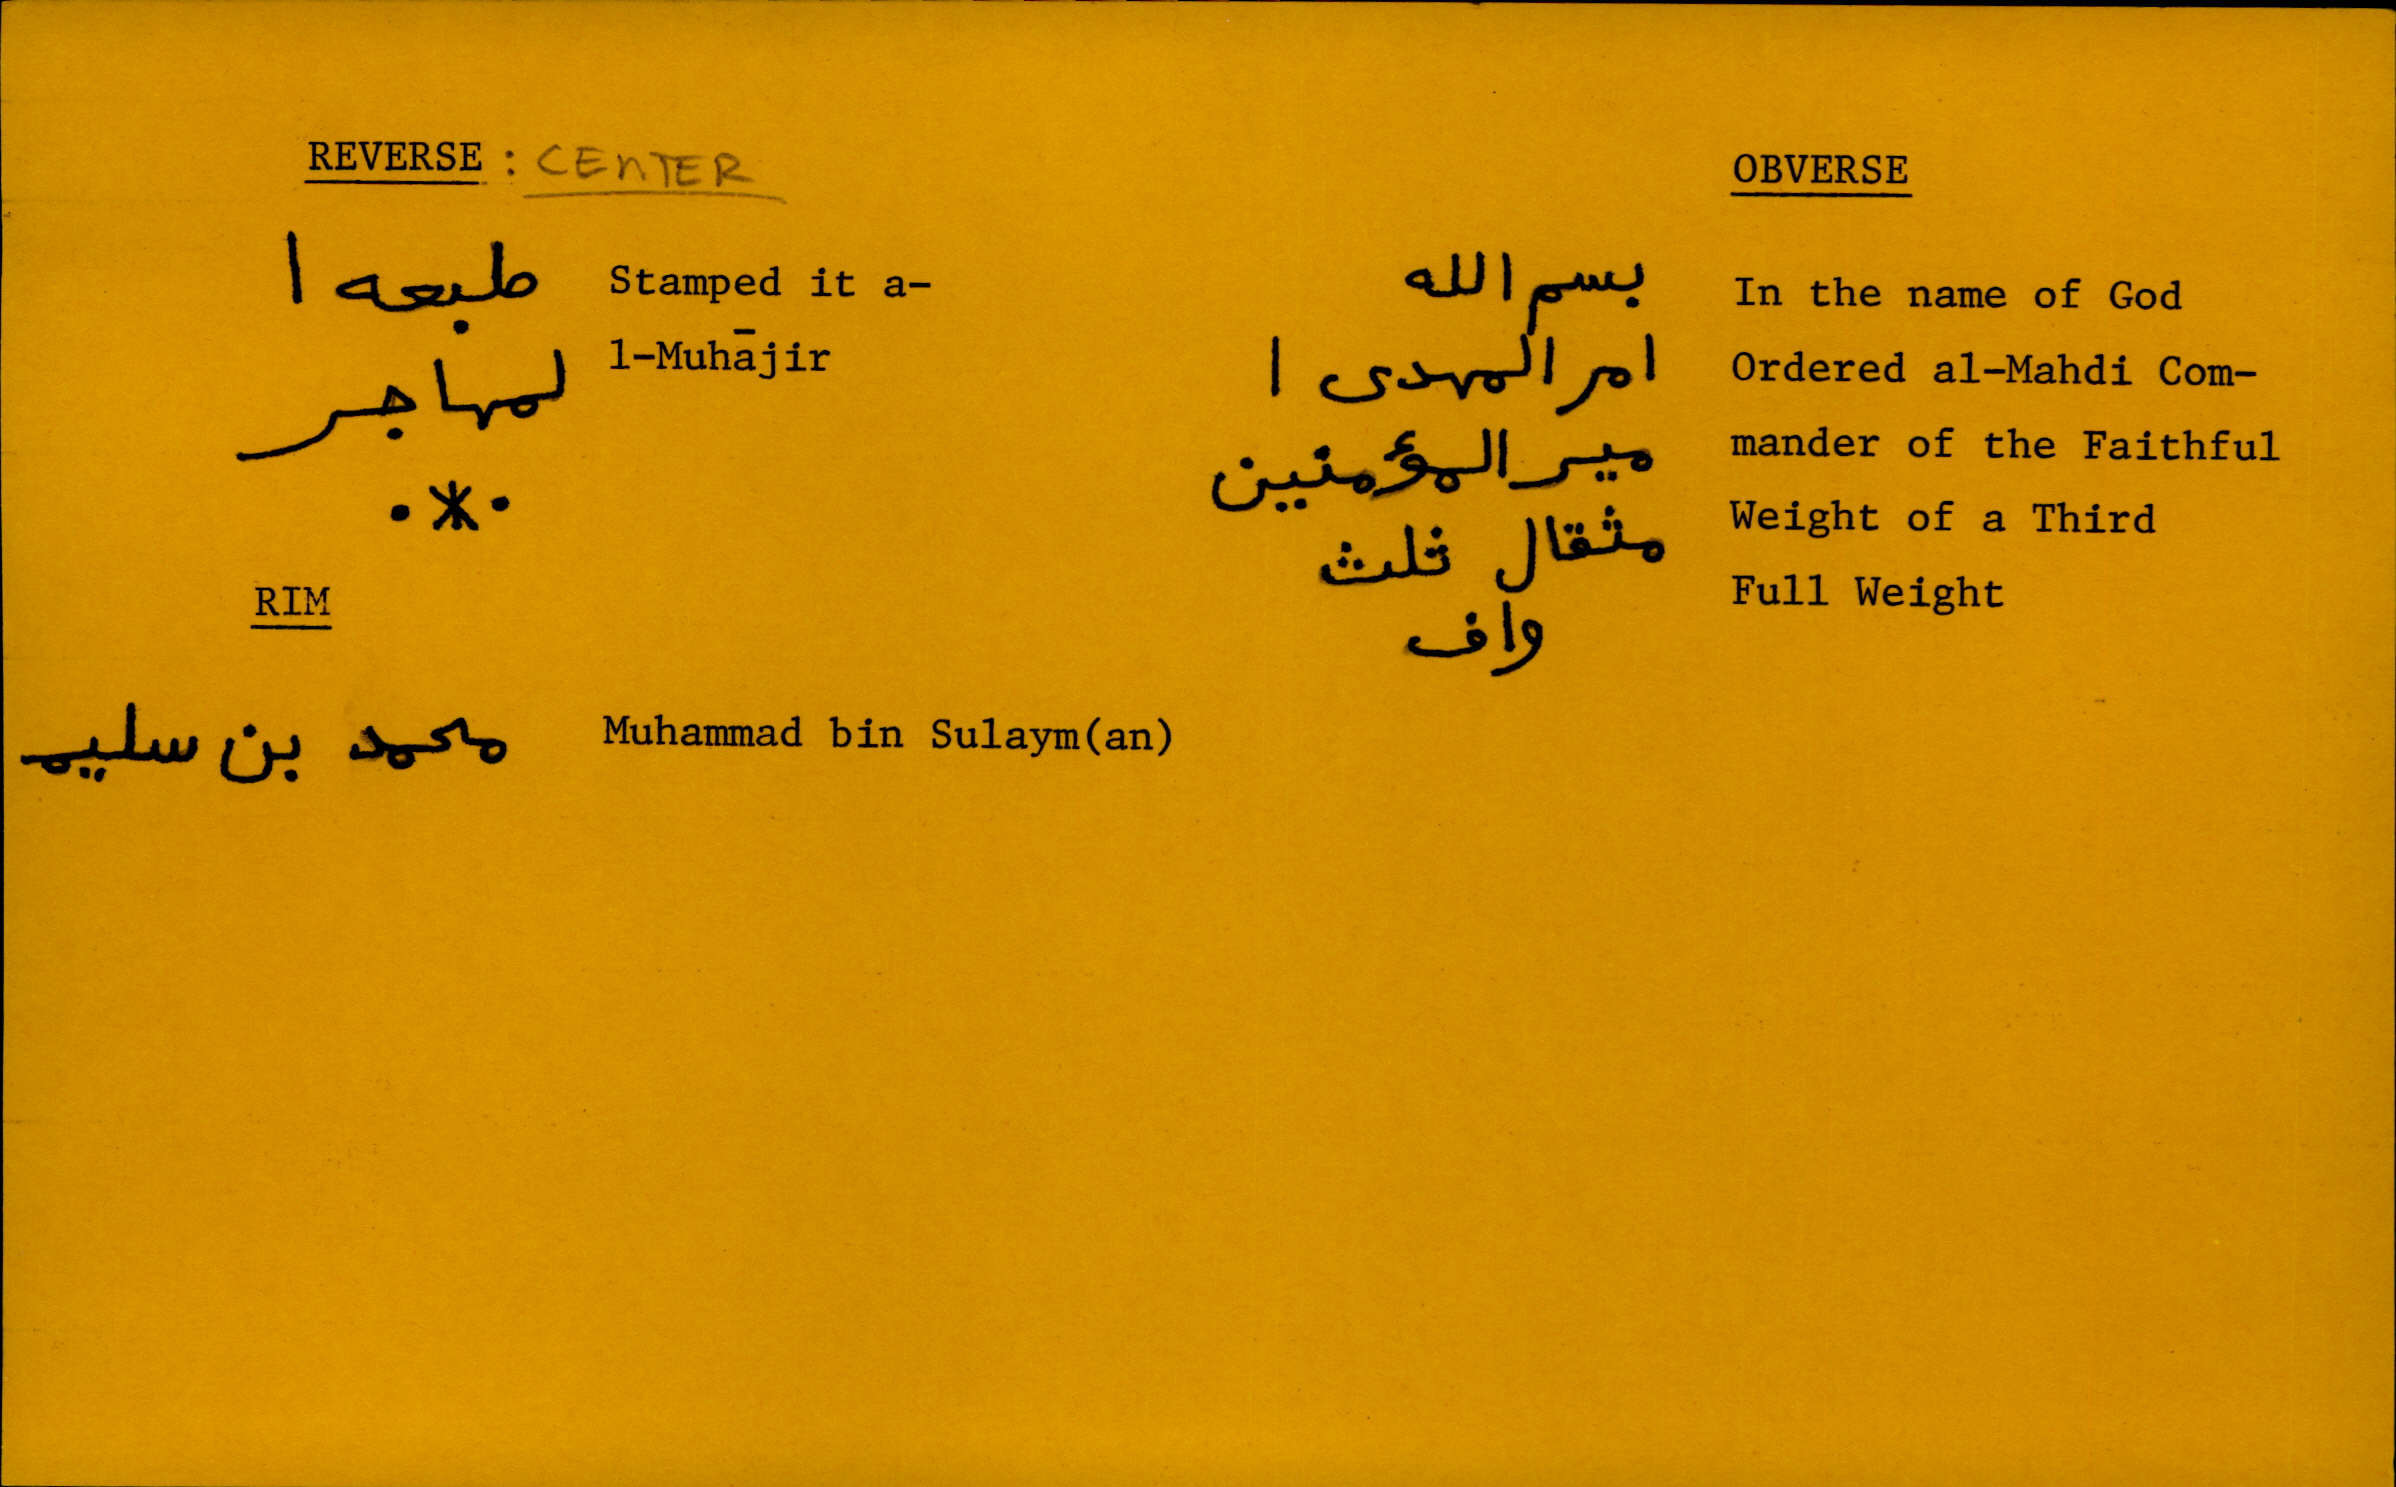 REVERSE : CENTER
طبعه ا Stamped it a-
لمهاجر l-Muhājir
.*.
RIM
محمد بن سليمـ Muhammad bin Sulaym(an)
OBVERSE
بسم الله In the name of God
امر المهدى ا Ordered al-Mahdi Com-
مير المؤمنين mander of the Faithful
مثقال ثلث Weight of a Third
واف Full Weight